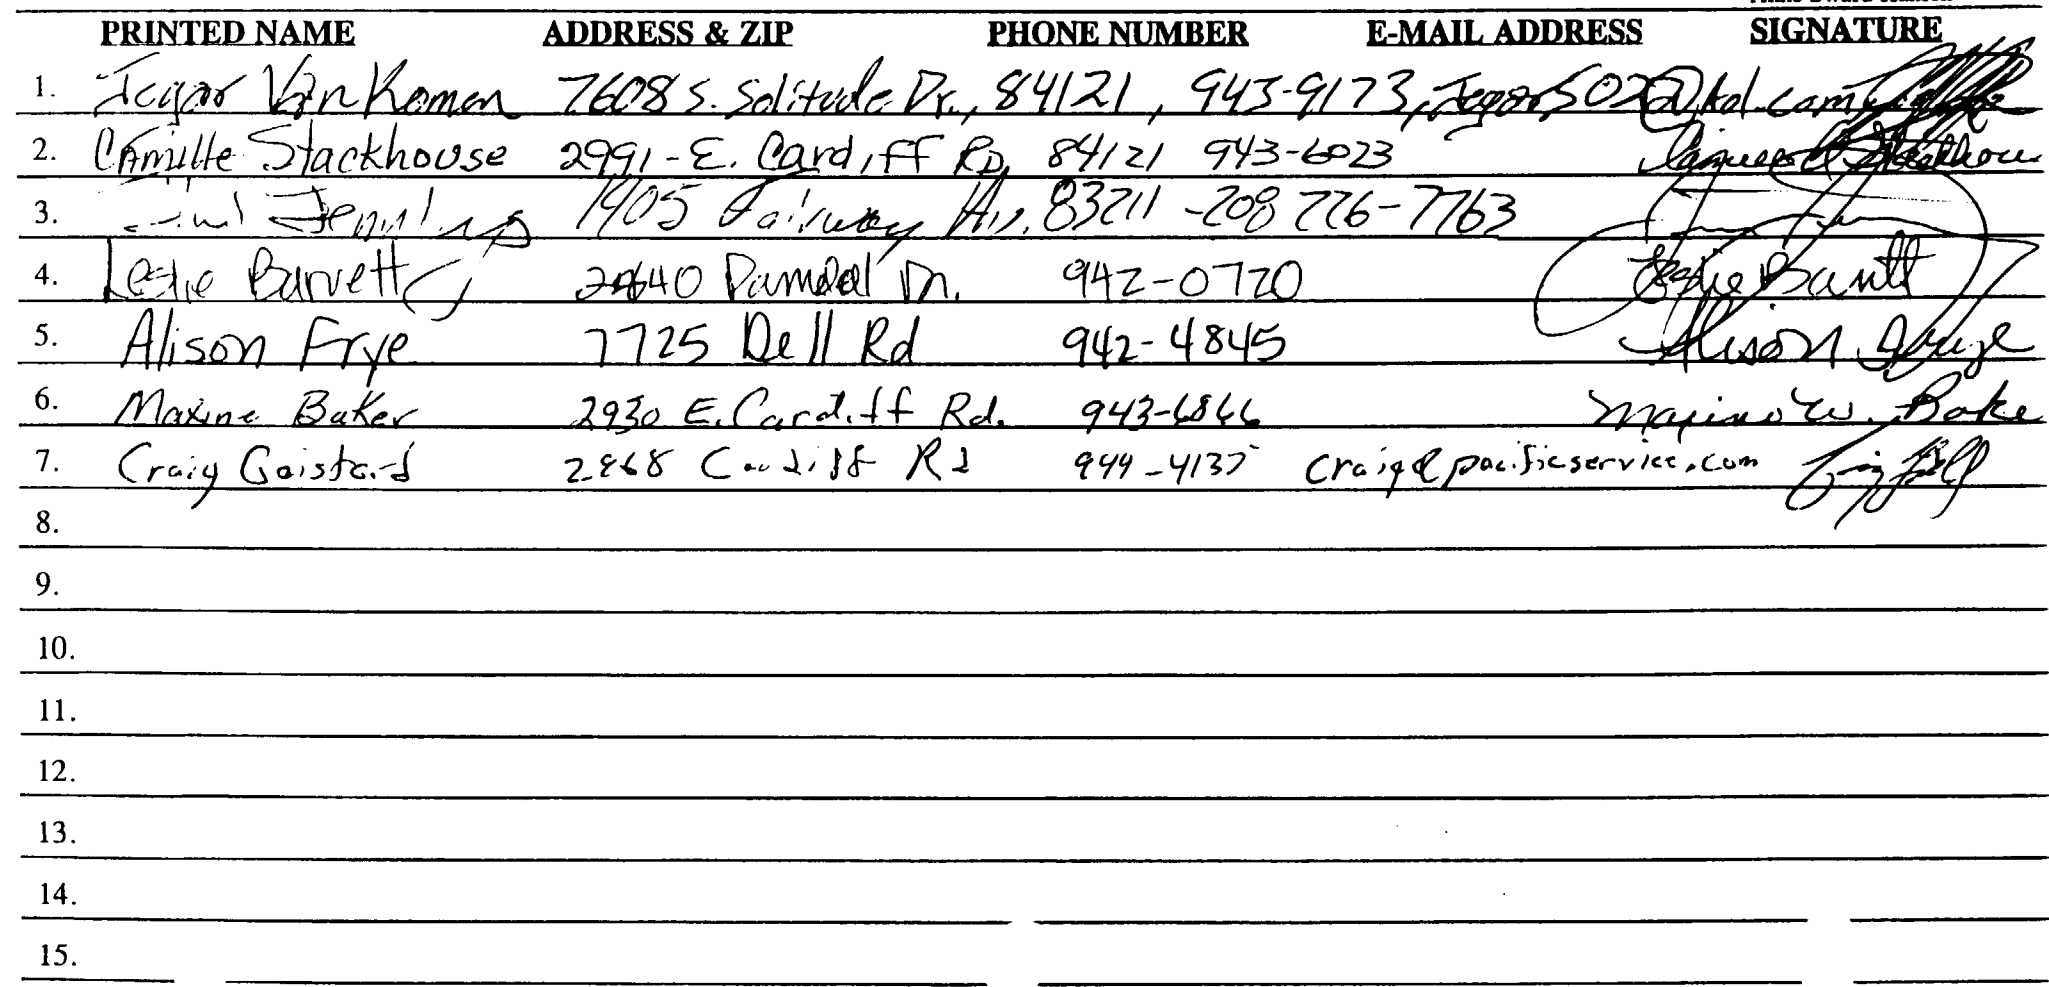 PRINTED NAME ADDRESS & ZIP PHONE NUMBER E-MAIL ADDRESS SIGNATURE
1. Jegar Van Komen 7608 S. Solitude Dr., 84121, 943-9173,
2. Camille Stackhouse 2991-E. Cardiff RD, 84121 943-6023
3. Jennings 1405 Fairway 83211 -208 226-7763
4. Leslie Barrett Dr. 942-0720 Leslie Barrett
5. Alison Frye 7725 Dell Rd 942-4845 Alison Frye
6. Maxine Baker 2930 E. Cardiff Rd. 943-6866 Maxine W. Bake
7. Craig 2868 Cardiff Rd 944-4135 craig@pacificservice.com
8.
9.
10.
11.
12.
13.
14.
15.